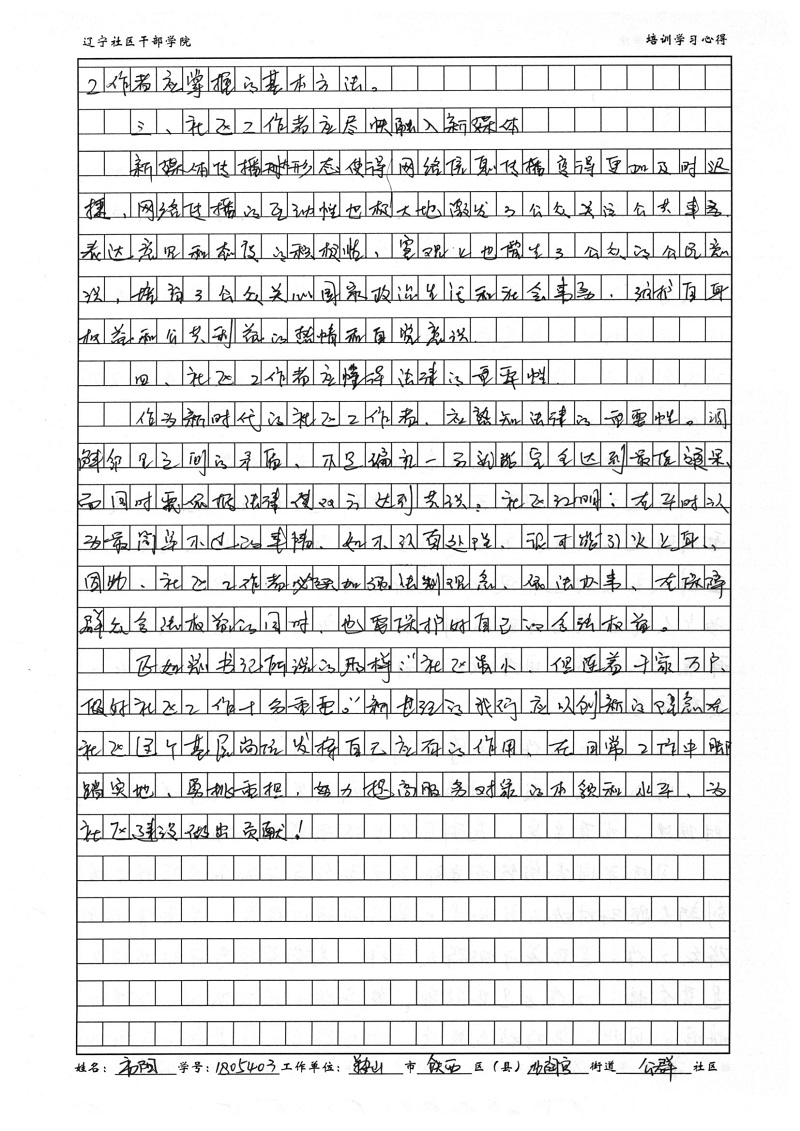 辽宁社区干部学院 培训学习心得
工作者应掌握的基本方法。
三、社区工作者应尽快融入新媒体
新媒体传播形态使得网络信息传播变得更加及时迅
捷,网络传播的互动性也极大地激发了公众关注公共事务,
表达意见和态度的积极性,客观上也催生了公众的公民意
识,培育了公众关心国家政治生活和社会事务,维护自身
权益和公共利益的热情和自觉意识.
四、社区工作者应懂得法律的重要性.
作为新时代的社区工作者,应熟知法律的重要性。调
解邻里之间的矛盾,不是偏充一方就能完全达到最佳效果,
而同时需依据法律使双方达到共识。社区在平时认
为最简单不过的事情,如不认真处理,很可能引火上身,
因此,社区工作者必须加强法制观念,依法办事,在保障
群众合法权益的同时,也要保护好自己的合法权益。
正如书记所说的那样:“社区虽小,但连着千家万户,
做好社区工作十分重要。”新世纪的我们应以创新的理念在
社区这个基层岗位发挥自己应有的作用,在日常工作中脚
踏实地,勇挑重担,努力提高服务对象的本领和水平,为
社区建设做出贡献!
姓名: 学号:1805403 工作单位:鞍山 市 铁西 区(县) 街道 公群 社区